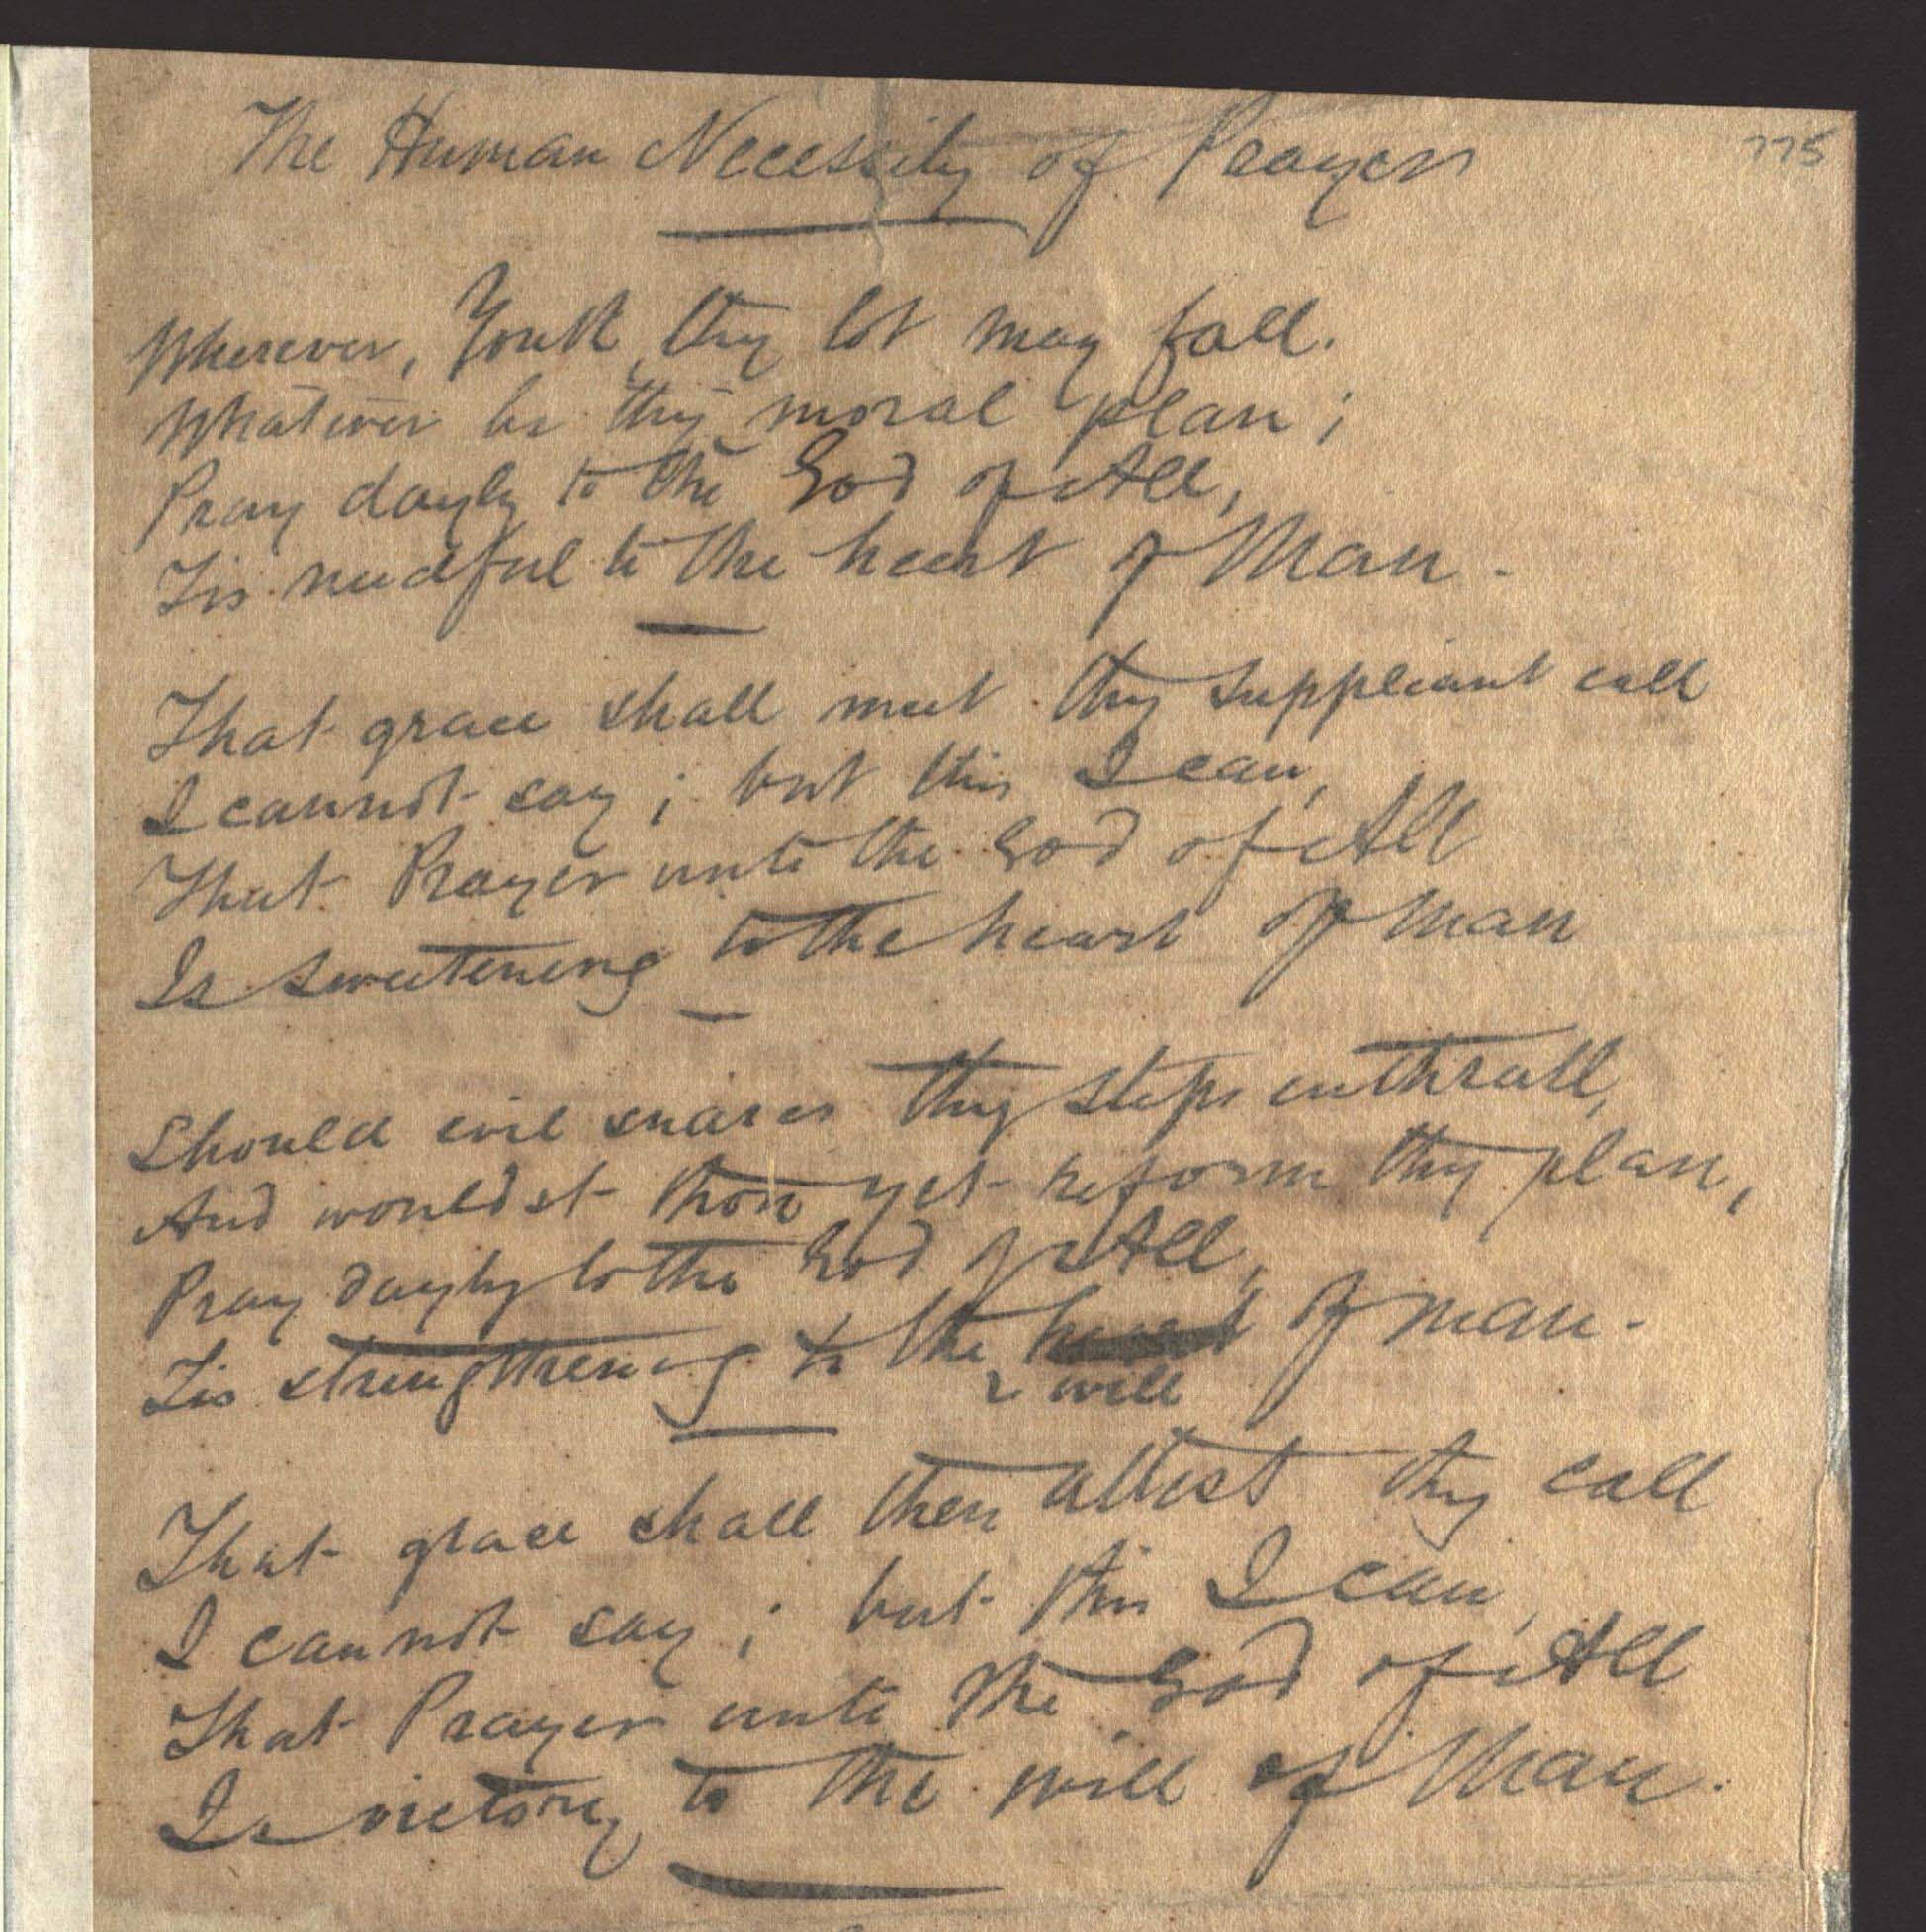 The Human Necessity of Prayer
775
Wherever, Youth, thy lot may fall.
Whatever be thy moral plan;
Pray dayly to the God of All,
Tis needful to the heart of Man.
That grace shall meet thy suppliant call
I cannot say; but this I can,
That Prayer unto the God of All
Is sweetening to the heart of Man
Should evil snares thy steps enthrall,
And wouldst thou yet reform thy plan,
Pray dayly to the God of All,
Tis strengthening to the heart of man.
will
That grace shall then attest thy call
I cannot say; but this I can,
That Prayer unto the God of All
Is victory to the will of Man.